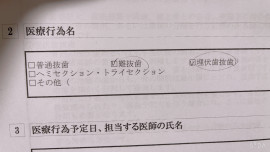 2 医療行為名
□普通抜歯 ☑難抜歯 ☑埋伏歯抜歯
□ヘミセクション・トライセクション
□その他（
3 医療行為予定日、担当する医師の氏名